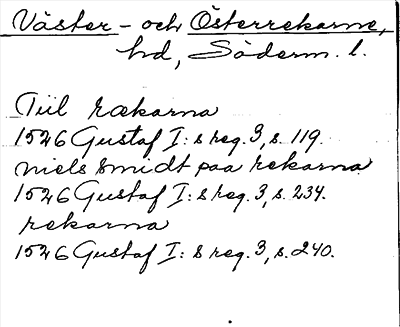 Väster- och Österrekarne,
hd, Söderm. l.
Till rækarna
1526 Gustaf I: s reg. 3, s. 119.
niels smidt paa rekarna
1526 Gustaf I: s reg. 3, s. 234.
rekarna
1526 Gustaf I: s reg. 3, s. 240.